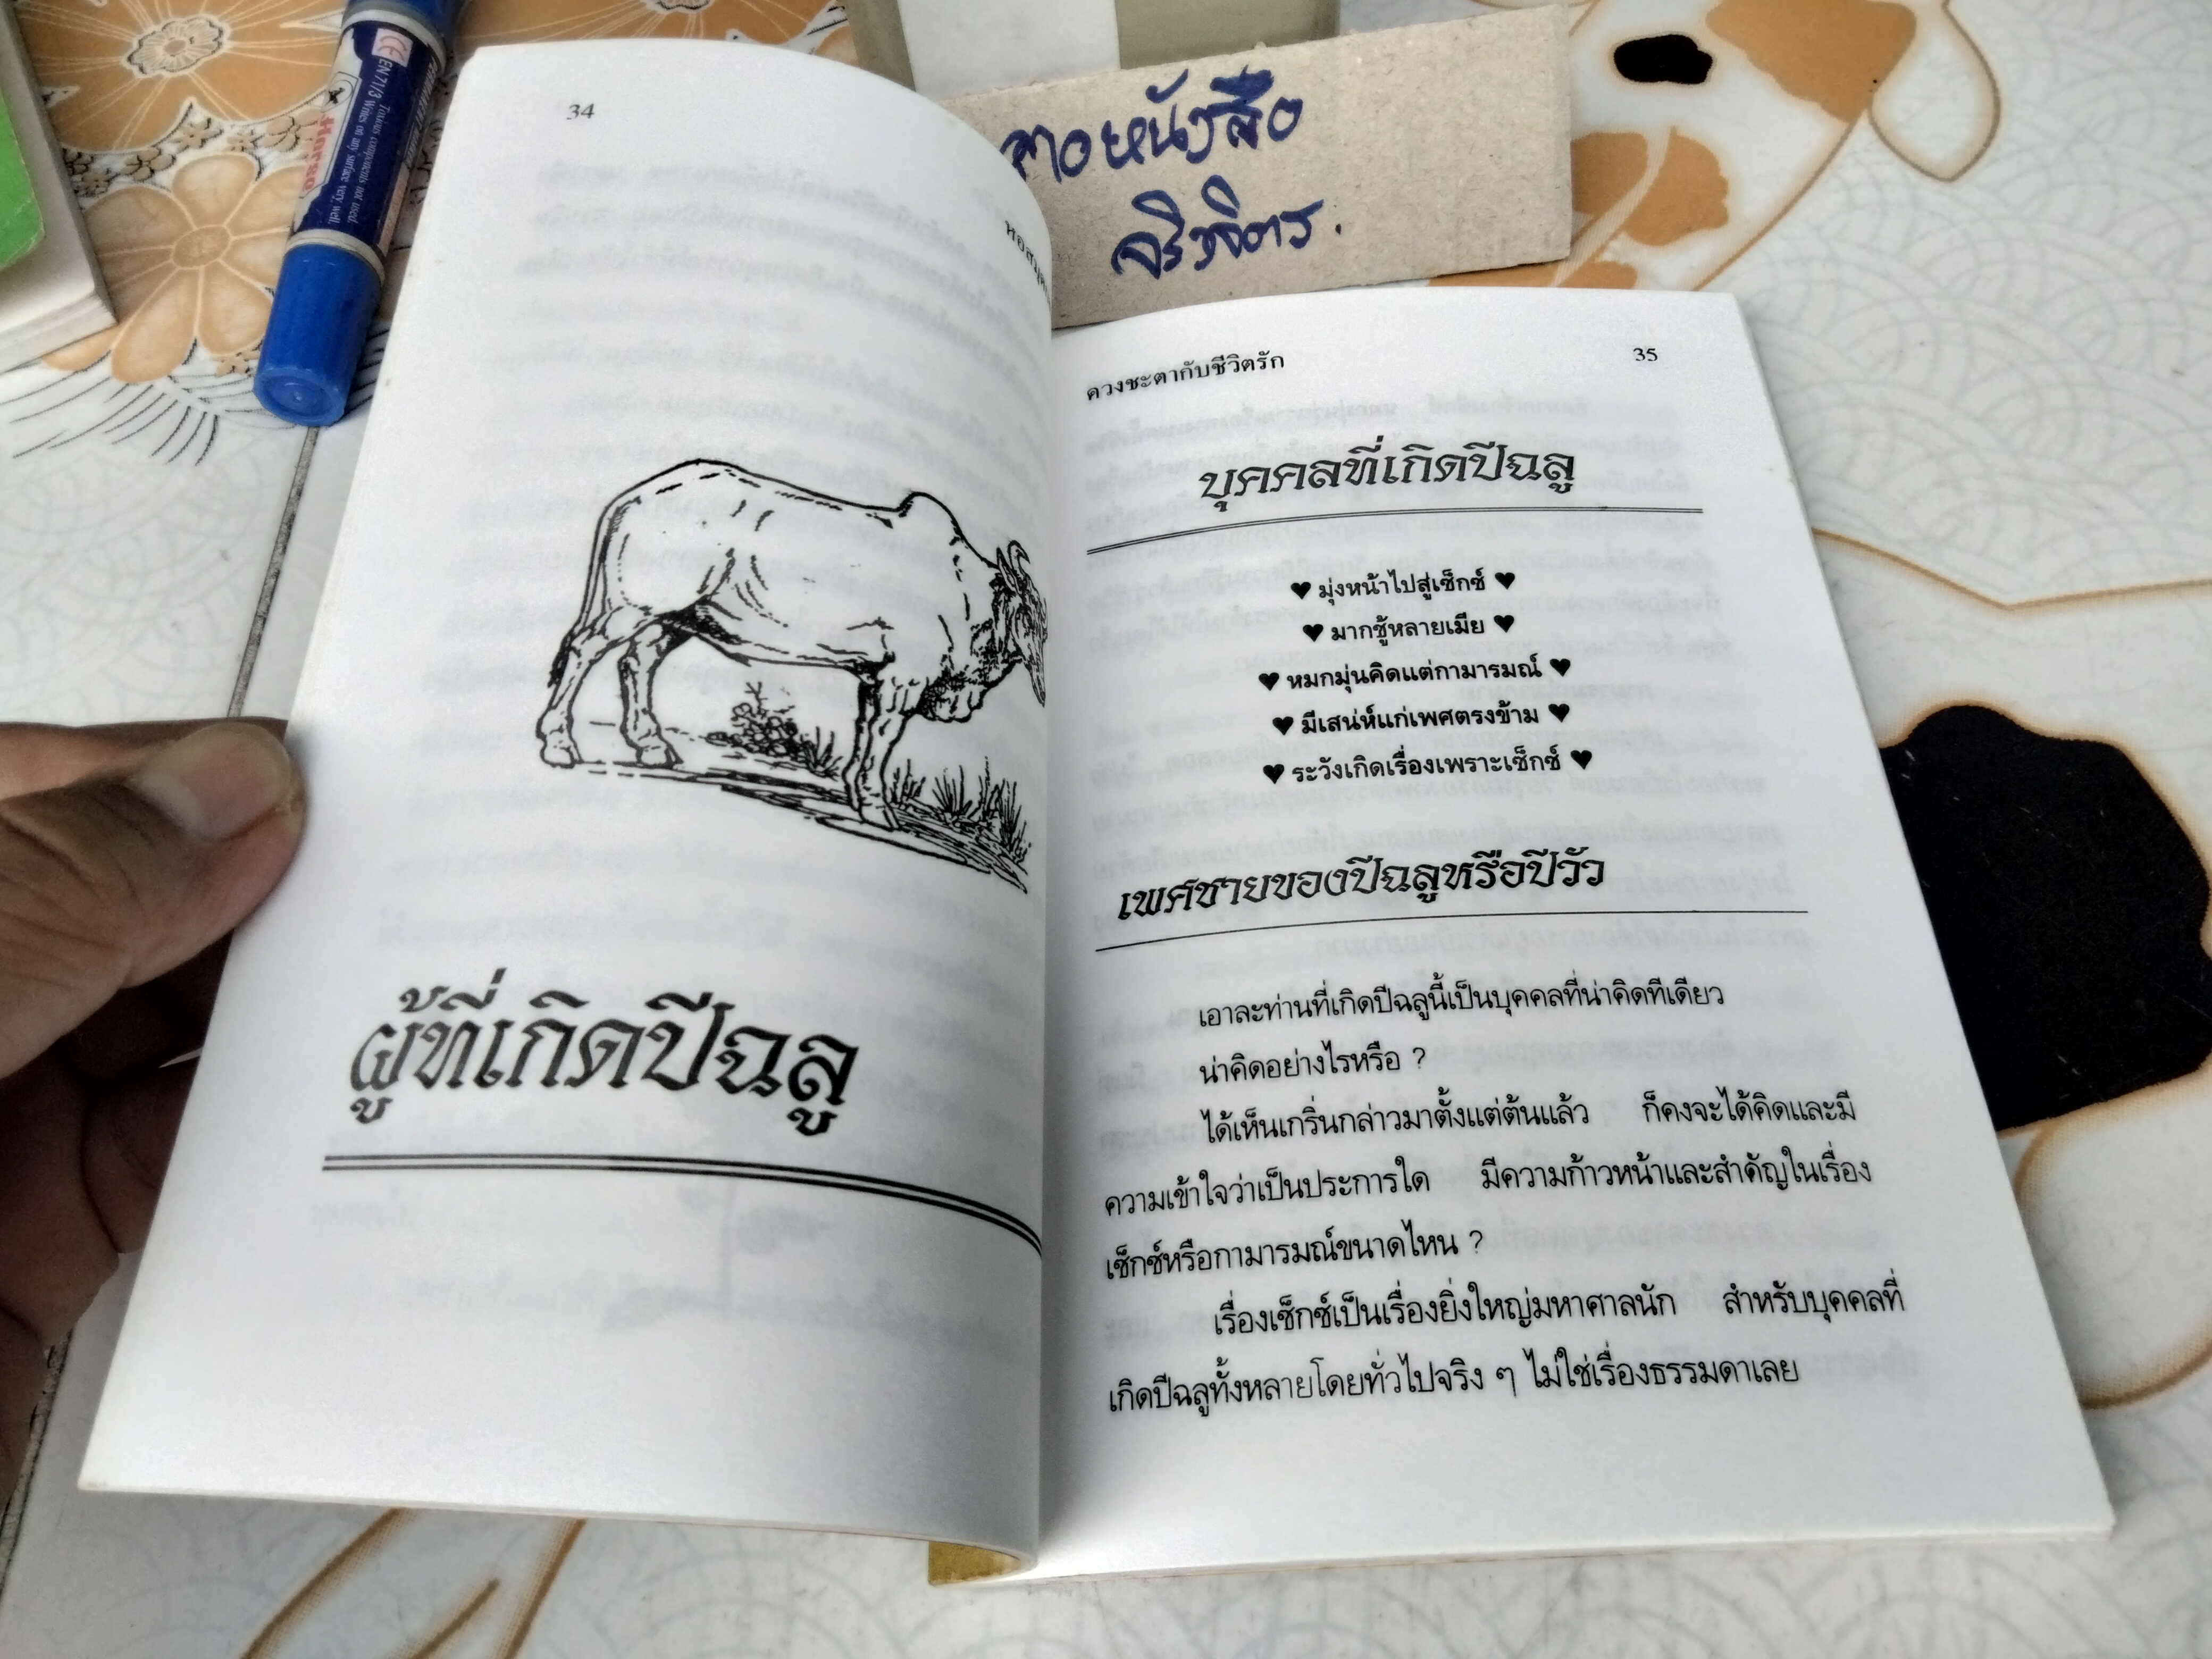 34
หอสมุด
ผู้ที่เกิดปีฉลู
ดวงชะตากับชีวิตรัก
35
บุคคลที่เกิดปีฉลู
♥ มุ่งหน้าไปสู่เซ็กซ์ ♥
♥ มากชู้หลายเมีย ♥
♥ หมกมุ่นคิดแต่กามารมณ์ ♥
♥ มีเสน่ห์แก่เพศตรงข้าม ♥
♥ ระวังเกิดเรื่องเพราะเซ็กซ์ ♥
เพศชายของปีฉลูหรือปีวัว
เอาละท่านที่เกิดปีฉลูนี้เป็นบุคคลที่น่าคิดทีเดียว
น่าคิดอย่างไรหรือ ?
ได้เห็นเกริ่นกล่าวมาตั้งแต่ต้นแล้ว ก็คงจะได้คิดและมี
ความเข้าใจว่าเป็นประการใด มีความก้าวหน้าและสำคัญในเรื่อง
เซ็กซ์หรือกามารมณ์ขนาดไหน ?
เรื่องเซ็กซ์เป็นเรื่องยิ่งใหญ่มหาศาลนัก สำหรับบุคคลที่
เกิดปีฉลูทั้งหลายโดยทั่วไปจริง ๆ ไม่ใช่เรื่องธรรมดาเลย
หนังสือ
CE EN 71/3
Toxious components not used
Writes on any surface very well.
Horse